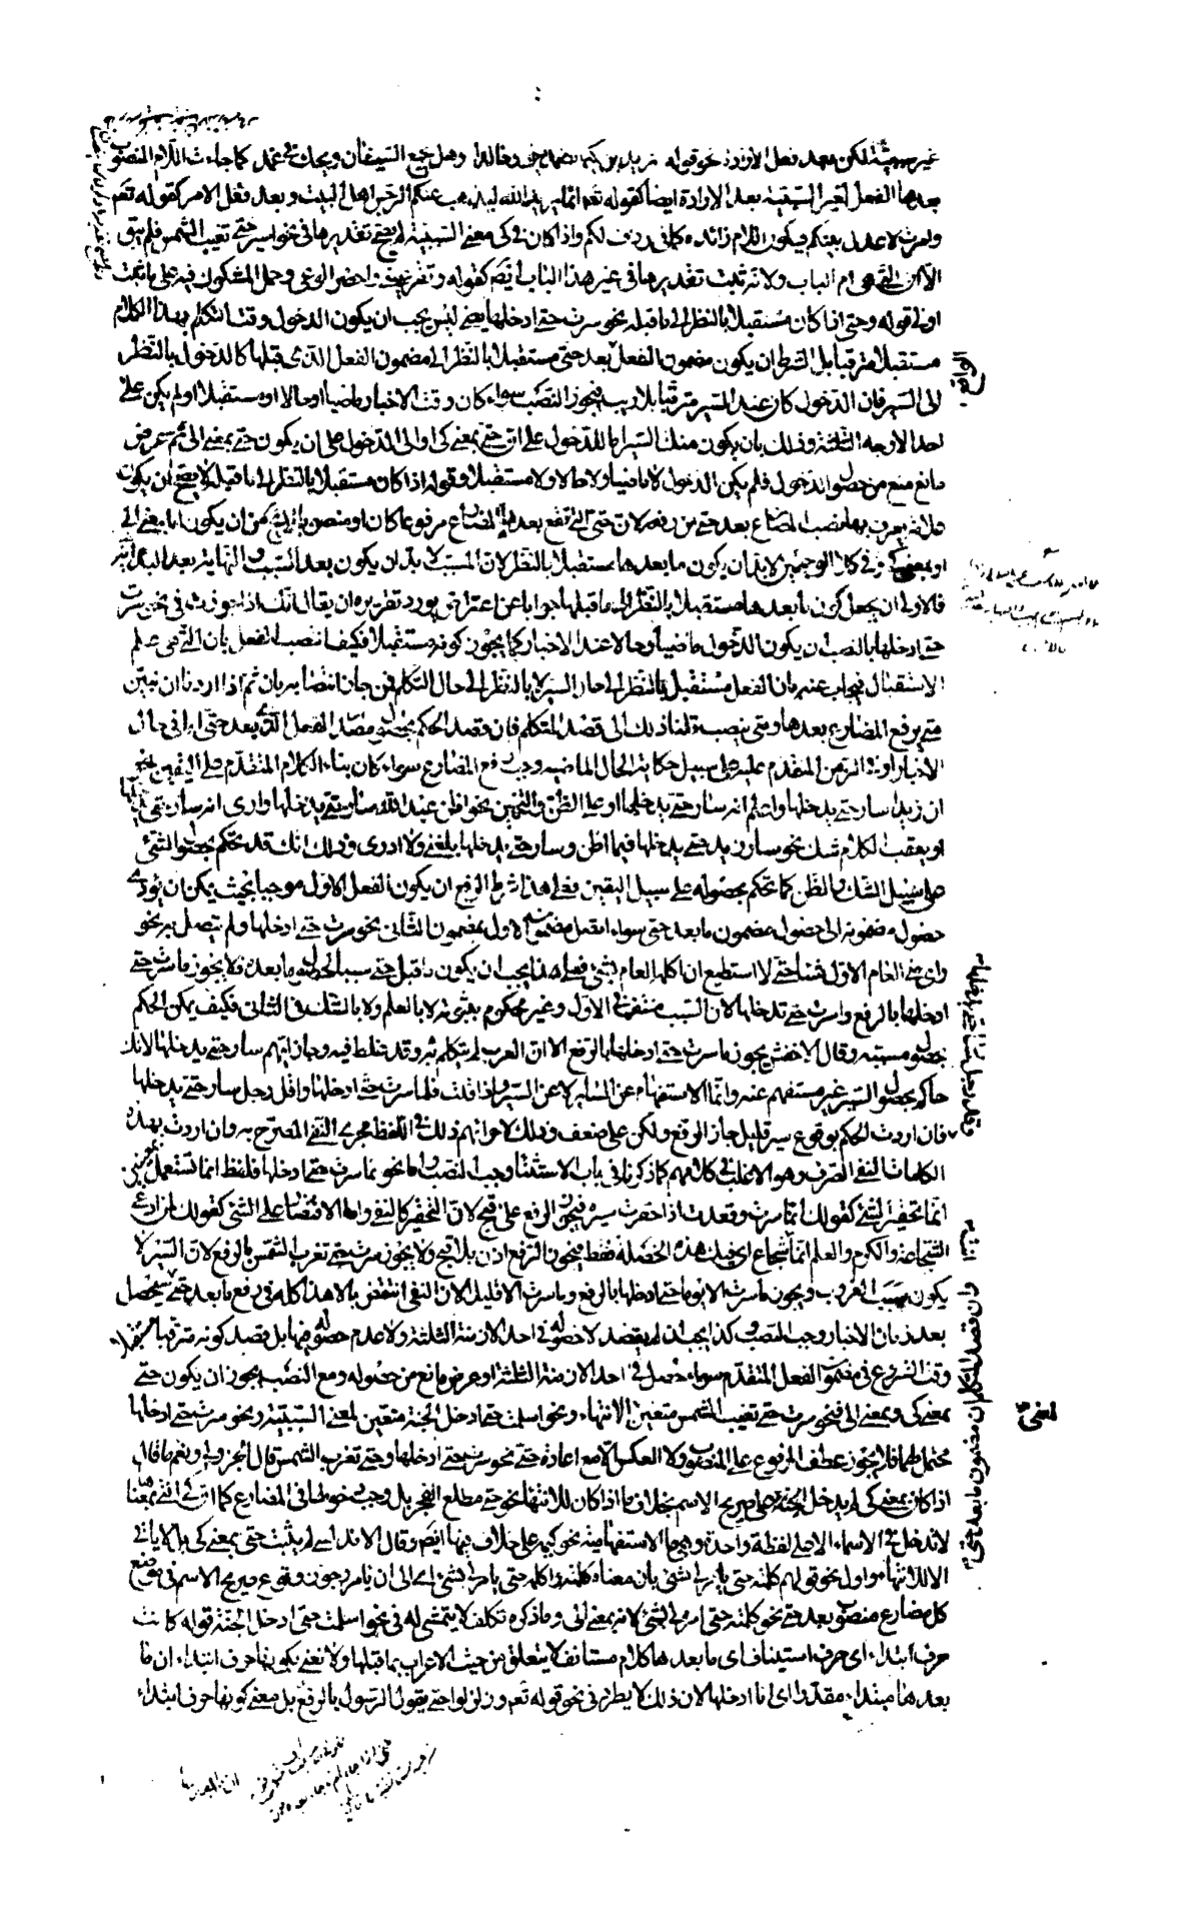 بعدها الفعل لغير السببية بعد الارادة ايضا كقوله تعالى انما يريد الله ليذهب عنكم الرجس اهل البيت وبعد فعل الامر كقوله تعم
وامرت لاعدل بينكم فيكون اللام زائدة كما في ردف لكم واذا كان في كي معنى السببية لم يصح تقديرها في نحو اسير حتى تغيب الشمس فلم يبق
الا ان التي هي ام الباب ولانه ثبت تقديرها في غير هذا الباب ايضم كقوله وتقر عيني واحضر الوغى وحمل المشكوك فيه على ما ثبت
اولى قوله وحتى اذا كان مستقبلا بالنظر الى ما قبله نحو سرت حتى ادخلها يعني ليس يجب ان يكون الدخول وقت التكلم بهذا الكلام
مستقبلا مترقبا بل الشرط ان يكون مضمون الفعل بعد حتى مستقبلا بالنظر الى مضمون الفعل الذي قبلها كالدخول بالنظر
الى السير فان الدخول كان عند السير مترقبا بلا ريب فيجوز النصب سواء كان وقت الاخبار ماضيا او حالا او مستقبلا او لم يكن على
احد الاوجه الثلثة وذلك بان يكون منك السير اما للدخول على ان حتى بمعنى كي او الى الدخول على ان يكون حتى بمعنى الى ثم عرض
مانع منع من حصول الدخول فلم يكن الدخول لا ماضيا ولا حالا ولا مستقبلا وقوله اذا كان مستقبلا بالنظر الى ما قبله لا يصح ان يكون
او بمعنى كي وفي كلا الوجهين لابد ان يكون ما بعدها مستقبلا بالنظر لان المسبب لابد ان يكون بعد السبب والنهاية بعد البداية
فالاولى ان يجعل كون ما بعدها مستقبلا بالنظر الى ما قبلها جوابا عن اعتراض يورد تقريره ان يقال انك اذا جوزت في نحو سرت
حتى ادخلها بالنصب ان يكون الدخول ماضيا وحالا عند الاخبار كما يجوز كونه مستقبلا فكيف انصب الفعل بان التي هي علم
الاستقبال فيجاب عنه بان الفعل مستقبل بالنظر الى حال السير لا بالنظر الى حال التكلم فمن جاز انتصابه بان ثم اذا اردنا ان نبين
متى يرفع المضارع بعدها ومتى ينصب قلنا ذلك الى قصد المتكلم فان قصد الحكم بحصول مصدر الفعل الذي بعد حتى اما في حال
الاخبار او في الزمن المتقدم عليه على سبيل حكاية الحال الماضية وجب رفع المضارع سواء كان بناء الكلام المتقدم على اليقين نحو
ان زيدا سار حتى يدخلها واعلم انه سار حتى يدخلها او على الظن والتخمين نحو اظن عبد الله سار حتى يدخلها وارى انه سار حتى يدخلها
او يعقب الكلام شك نحو سار زيد حتى يدخلها فيما اظن وسار حتى يدخلها بلغني ولا ادري وذلك انك قد تحكم بحصول الشئ
على سبيل الشك والظن كما تحكم بحصوله على سبيل اليقين فعلى هذا شرط الرفع ان يكون الفعل الاول موجبا بحيث يمكن ان يؤدي
حصول مضمونه الى حصول مضمون ما بعد حتى سواء اتصل مضمون الاول بمضمون الثاني نحو سرت حتى ادخلها او لم يتصل به نحو
راى مني العام الاول شيئا حتى لا استطيع ان اكلمه العام بشئ فعلى هذا يجب ان يكون ما قبل حتى سببا لحصول ما بعده فلا يجوز ما سرت حتى
ادخلها بالرفع واسرت حتى تدخلها لان السبب منتف في الاول وغير محكوم بثبوته لا بالعلم ولا بالشك في الثاني فكيف يمكن الحكم
بحصول مسببه وقال الاخفش يجوز ما سرت حتى ادخلها بالرفع الا ان العرب لم يتكلم به وقد غلط فيه وجاز ايهم سار حتى يدخلها لانك
حاكم بحصول السير غير مستفهم عنه وانما الاستفهام عن السائر لا عن السير واذا قلت قلما سرت حتى ادخلها واقل رجل سار حتى يدخلها
فان اردت الحكم بوقوع سير قليل جاز الرفع ولكن على ضعف وذلك لاجرائهم ذلك في اللفظ مجرى النفي المصرح به وان اردت بهذه
الكلمات النفي الصرف وهو الاغلب في كلامهم كما ذكرنا في باب الاستثناء وجب النصب واما نحو انما سرت حتى ادخلها فلفظ انما تستعمل لمعنيين
اما تحقير الشئ كقولك انما سرت وقعدت اذا حقرت سيره فيجوز الرفع على قبح لان التحقير كالنفي واما الاقتصار على الشئ كقولك لمن ادعى
الشجاعة والكرم والعلم انما شجاع اي فيك هذه الخصلة فقط فيجوز الرفع اذن بلا قبح ولا يجوز سرت حتى تغرب الشمس بالرفع لان السير لا
يكون سبب الغروب ويجوز ما سرت الا يوما حتى ادخلها بالرفع وما سرت الا قليلا لان النفي انتقض بالا هذا كله في رفع ما بعد حتى سيحصل
بعد زمان الاخبار وجب النصب وكذا يجب ان لم يقصد لا حصوله في احد الازمنة الثلثة ولا عدم حصوله فيها بل قصد كونه مترقبا مستقبلا
وقت الشروع في مضمون الفعل المتقدم سواء حصل في احد الازمنة الثلثة او عرض مانع من حصوله ومع النصب يجوز ان يكون حتى
بمعنى كي وبمعنى الى فنحو سرت حتى تغيب الشمس متعين الانتهاء ونحو اسلمت حتى ادخل الجنة متعين لمعنى السببية ونحو سرت حتى ادخلها
محتمل لهما فلا يجوز عطف المرفوع على المنصوب ولا العكس الا مع اعادة حتى نحو سرت حتى ادخلها وحتى تغرب الشمس قال الجزولي ونعم ما قال
اذا كان بمعنى كي لم يدخل الجنة على صريح الاسم بخلاف ما اذا كان للانتهاء نحو حتى مطلع الفجر بل وجب دخولها في المضارع كما ان كي التي بمعناها
لا تدخل في الاسماء الا على لفظة واحدة وهي ما الاستفهامية نحو كيمه على خلاف فيها ايضم وقال الاندلسي لم يثبت حتى بمعنى كي بل لا ياتي
الا للانتهاء واول نحو قولهم كلمته حتى يامر لي بشئ بان معناه كلمته واكلمه حتى يامر لي بشئ اي الى ان يامر وجوز وقوع صريح الاسم في موضع
كل مضارع منصوب بعد حتى نحو كلمته حتى امر لي بشئ لانه بمعنى الى وما ذكره تكلف لا يتمشى له في نحو اسلمت حتى ادخل الجنة قوله كانت
حرف ابتداء اي حرف استيناف اي ما بعدها كلام مستانف لا يتعلق من حيث الاعراب بما قبلها ولا نعني بكونها حرف ابتداء ان ما
بعدها مبتداء مقدرا اي انا ادخلها لان ذلك لا يطرد في نحو قوله تعم وزلزلوا حتى يقول الرسول بالرفع بل معنى كونها حرف ابتداء
وان قصد المتكلم ان مضمون ما بعد حتى